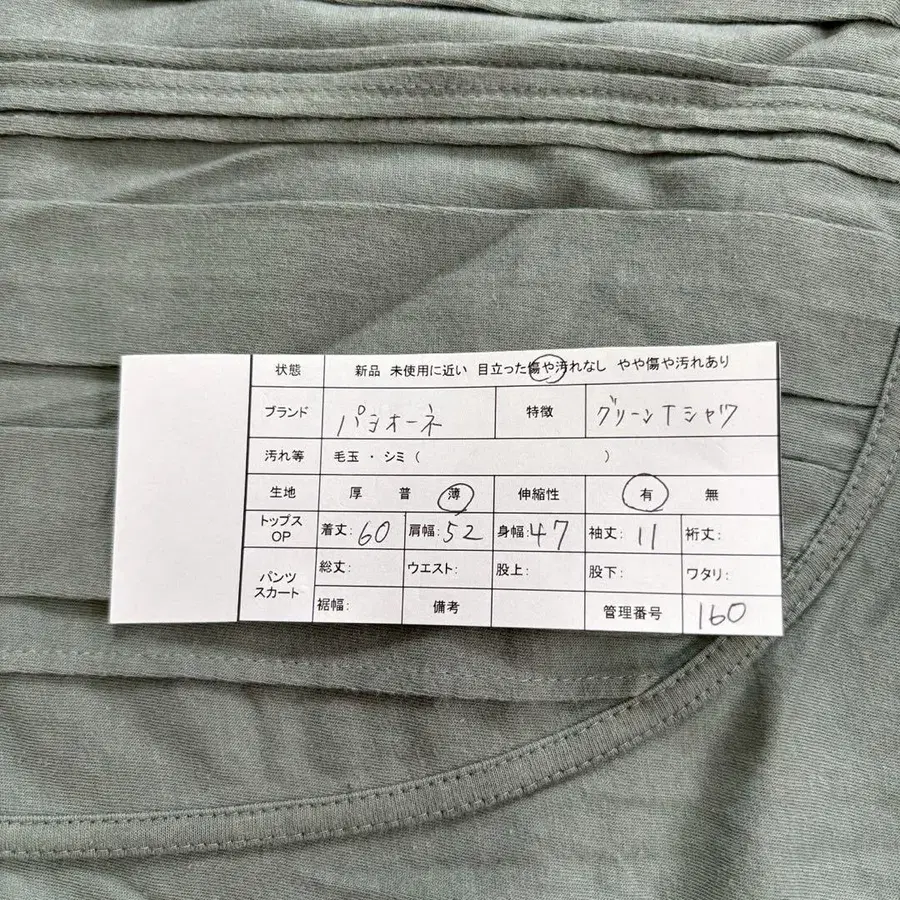 状態 新品 未使用に近い 目立った傷や汚れなし やや傷や汚れあり
ブランド パシオーネ 特徴 グリーンTシャツ
汚れ等 毛玉・シミ( )
生地 厚 普 薄 伸縮性 有 無
トップス OP 着丈:60 肩幅:52 身幅:47 袖丈:11 裄丈:
パンツ スカート 総丈: ウエスト: 股上: 股下: ワタリ:
裾幅: 備考 管理番号 160